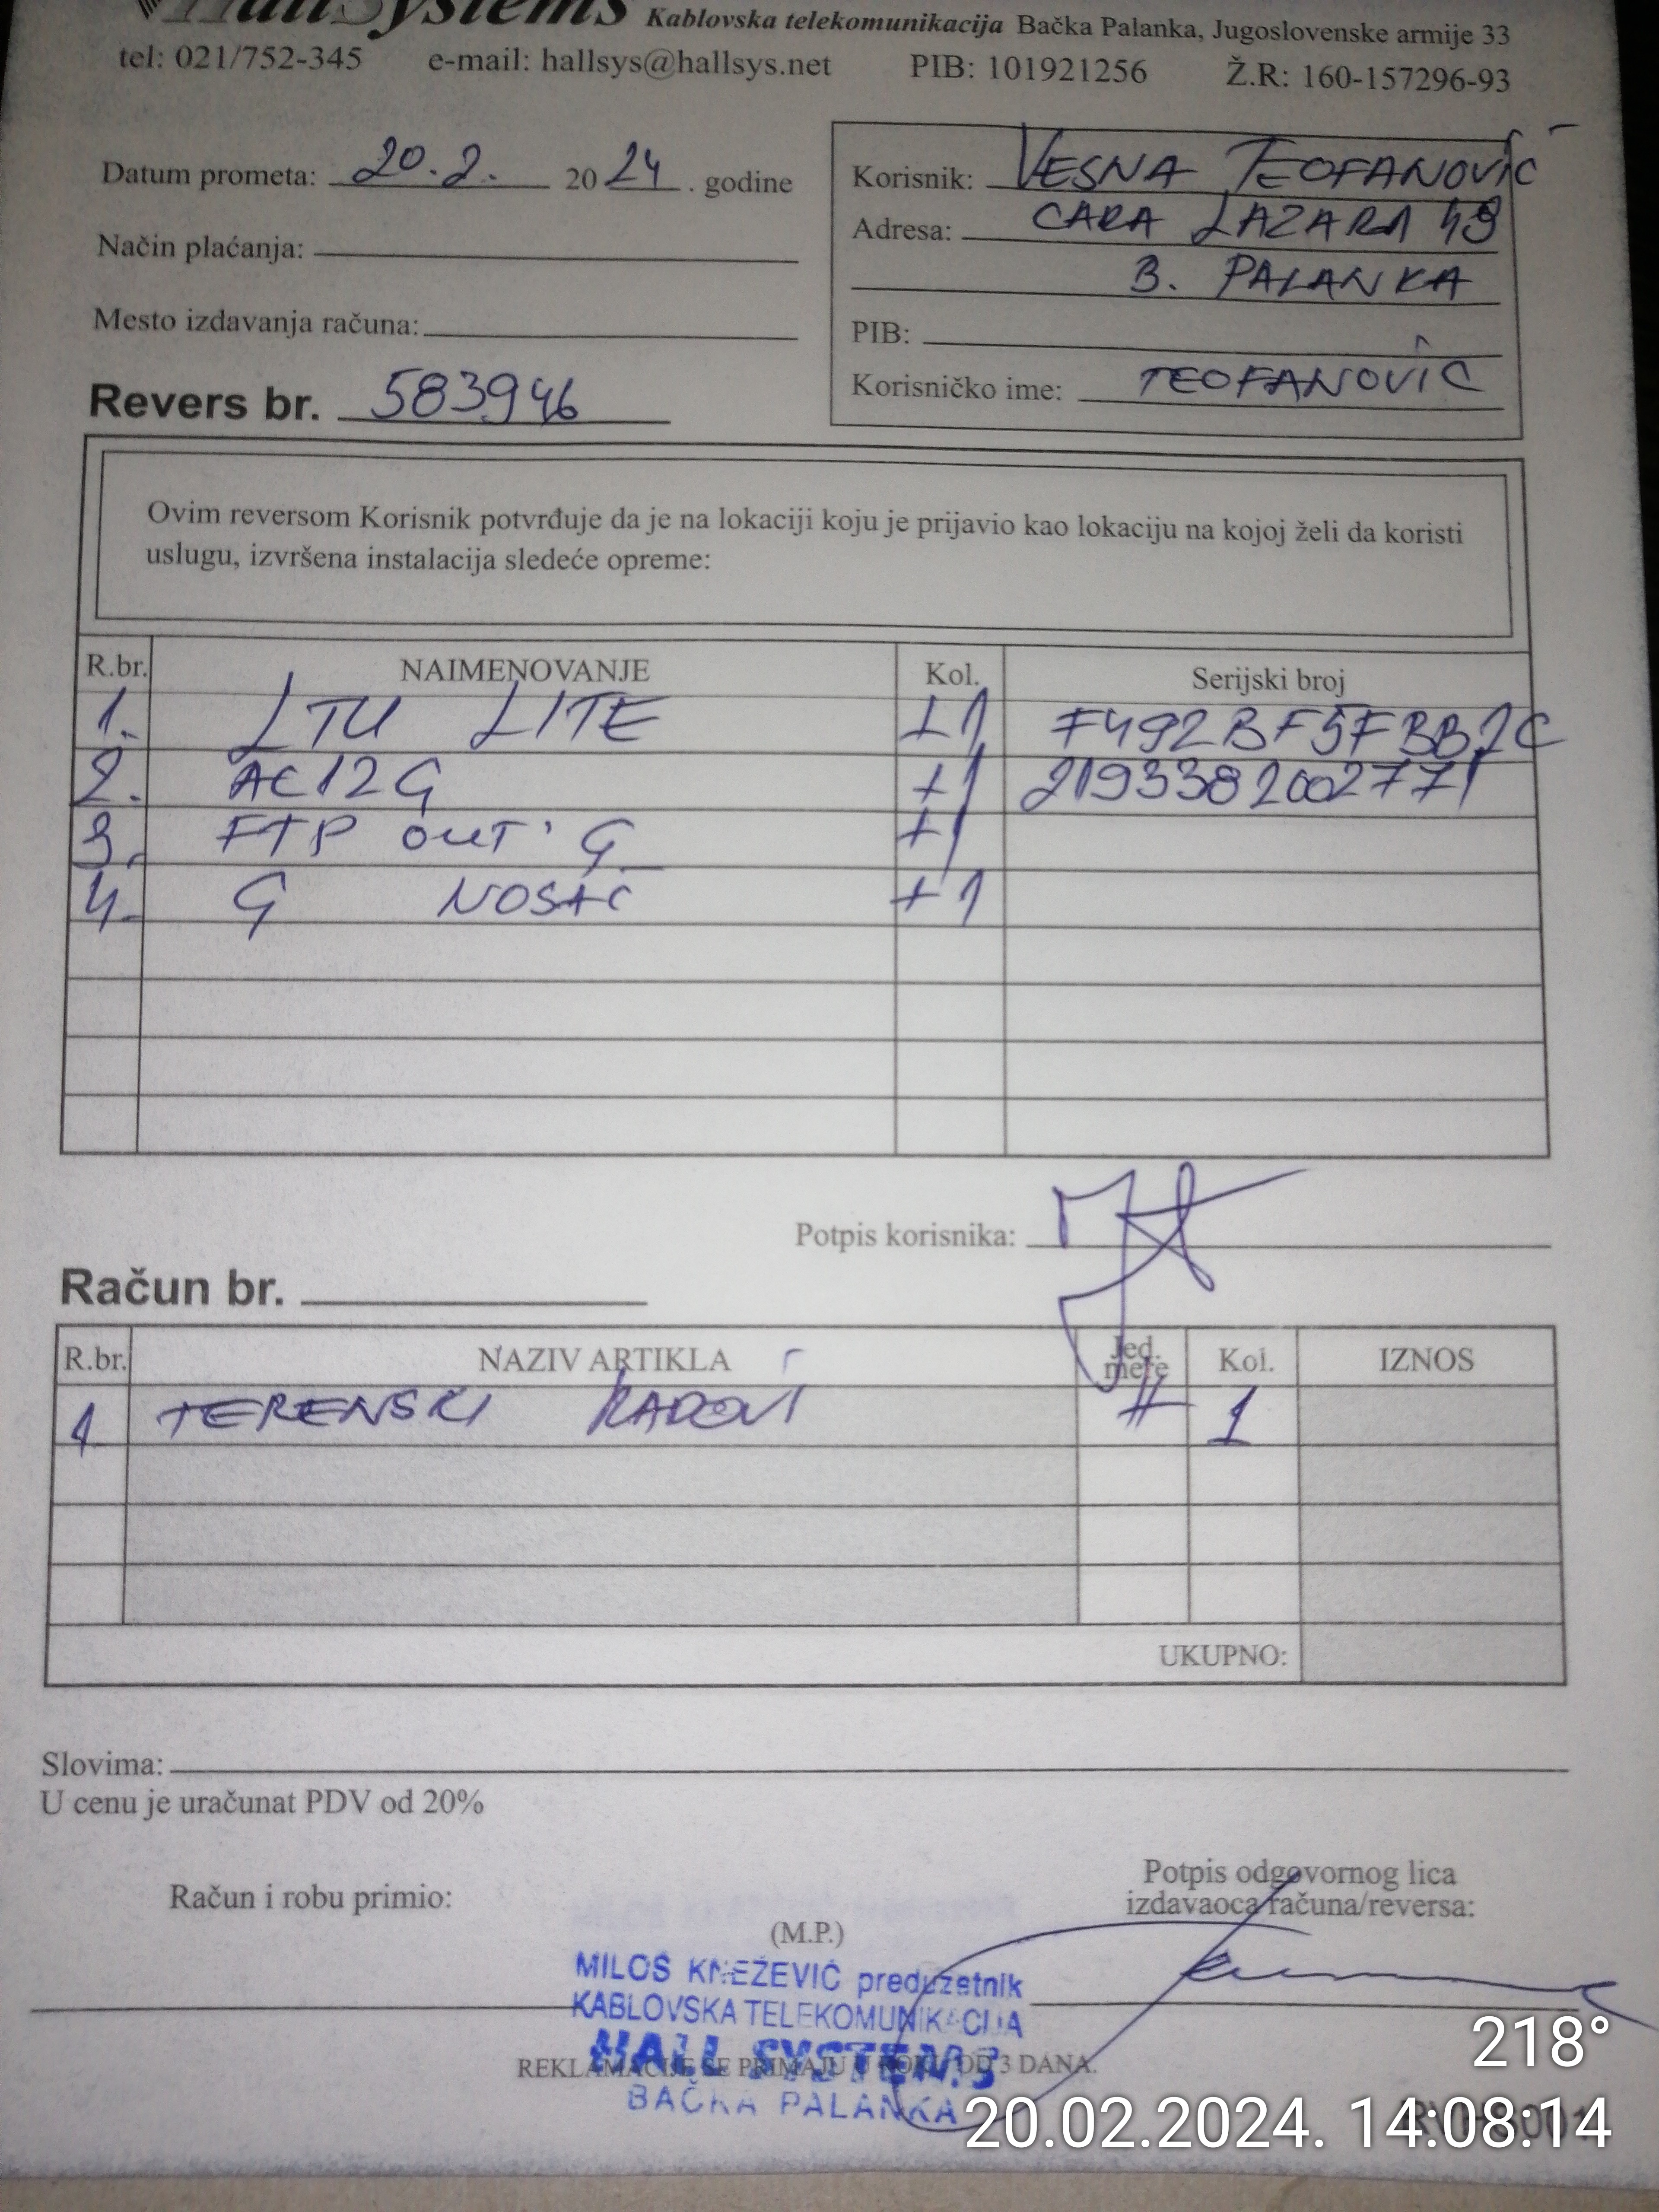 HallSystems Kablovska telekomunikacija Bačka Palanka, Jugoslovenske armije 33
tel: 021/752-345 e-mail: hallsys@hallsys.net PIB: 101921256 Ž.R: 160-157296-93
Datum prometa: 20.2. 2024. godine
Način plaćanja:
Mesto izdavanja računa:
Revers br. 583946
Korisnik: VESNA TEOFANOVIĆ
Adresa: CARA LAZARA 49
B. PALANKA
PIB:
Korisničko ime: TEOFANOVIĆ
Ovim reversom Korisnik potvrđuje da je na lokaciji koju je prijavio kao lokaciju na kojoj želi da koristi
uslugu, izvršena instalacija sledeće opreme:
R.br. NAIMENOVANJE Kol. Serijski broj
1. LTU LITE +1 F492BF5FBB2C
2. AC12G +1 2193382002771
3. FTP OUT' G +1
4. G NOSAČ +1
Potpis korisnika:
Račun br.
R.br. NAZIV ARTIKLA Jed. mere Kol. IZNOS
1 TERENSKI RADOVI H 1
UKUPNO:
Slovima:
U cenu je uračunat PDV od 20%
Račun i robu primio:
(M.P.)
Potpis odgovornog lica
izdavaoca računa/reversa:
MILOŠ KNEŽEVIĆ preduzetnik
KABLOVSKA TELEKOMUNIKACIJA
HALL SYSTEMS
BAČKA PALANKA
REKLAMACIJE SE PRIMAJU U ROKU OD 3 DANA.
218°
20.02.2024. 14:08:14